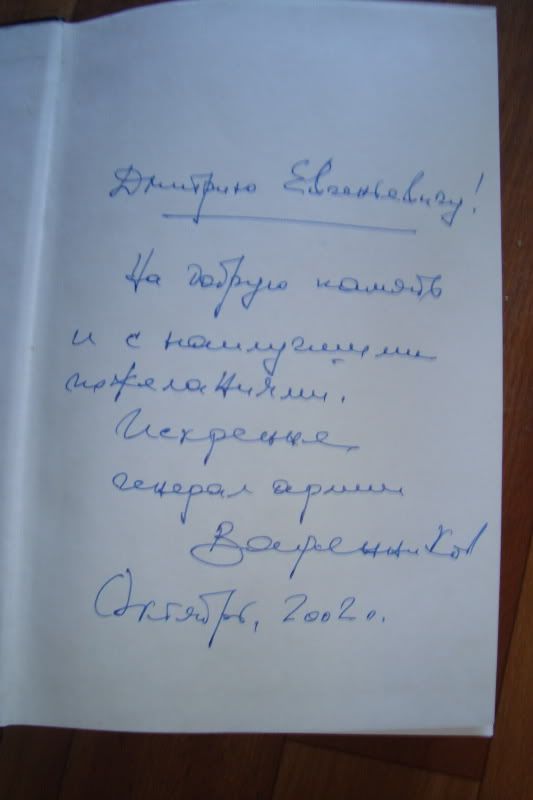 Дмитрию Евгеньевичу!
На добрую память
и с наилучшими
пожеланиями.
Искренне,
генерал армии
Варенников
Октябрь, 2002г.